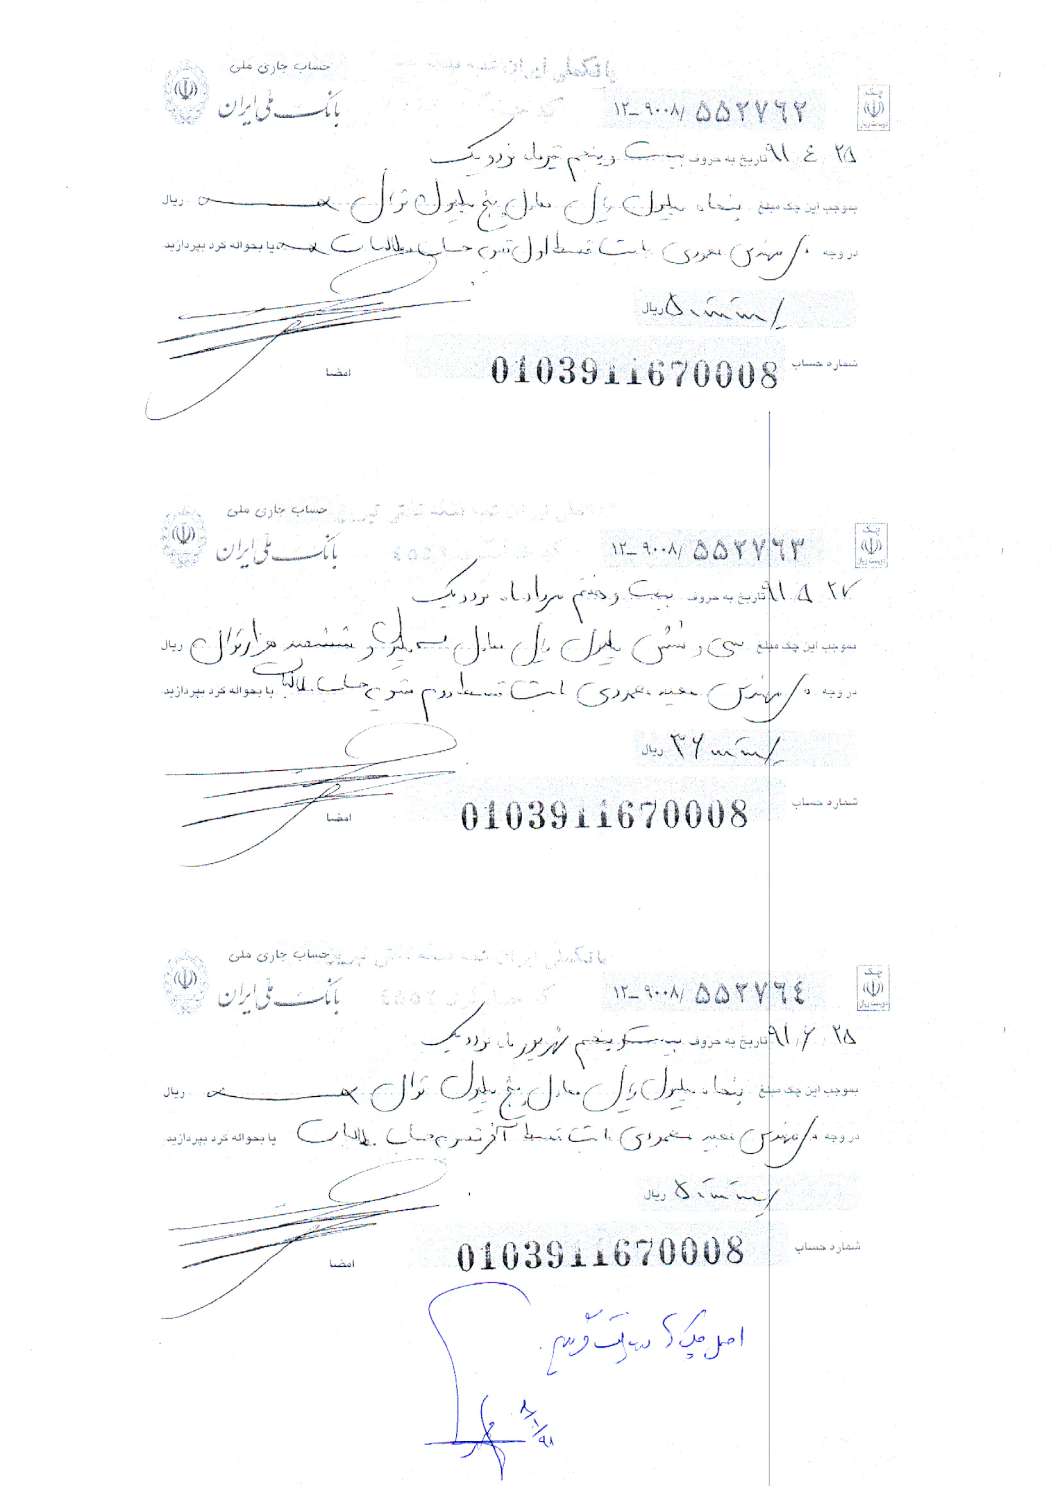 حساب جاری ملی
بانک ملی ایران
چک
۱۲_۹۰۰۸/ ۵۵۲۷۶۲
۹۱ ٤ ۲۵ تاریخ به حروف بیست و پنجم تیرماه نود و یک
بموجب این چک مبلغ پنجاه میلیون ریال معادل پنج میلیون تومان ریال
در وجه مهندس محمودی بابت قسط اول تسویه حساب مطالبات یا بحواله کرد بپردازید
۵۰٬۰۰۰٬۰۰۰ ریال
شماره حساب 0103911670008
امضا
حساب جاری ملی
بانک ملی ایران
چک
۱۲_۹۰۰۸/ ۵۵۲۷۶۳
۹۱ ۵ ۲۷ تاریخ به حروف بیست و هفتم مردادماه نود و یک
بموجب این چک مبلغ سی و شش میلیون ریال معادل سه میلیون و ششصد هزار تومان ریال
در وجه مهندس مجید محمودی بابت قسط دوم تسویه حساب مطالبات یا بحواله کرد بپردازید
۳۶٬۰۰۰٬۰۰۰ ریال
شماره حساب 0103911670008
امضا
حساب جاری ملی
بانک ملی ایران
چک
۱۲_۹۰۰۸/ ۵۵۲۷۶٤
۹۱/۶/۲۵ تاریخ به حروف بیست و پنجم شهریور ماه نود و یک
بموجب این چک مبلغ پنجاه میلیون ریال معادل پنج میلیون تومان ریال
در وجه مهندس مجید محمودی بابت قسط آخر تسویه حساب مطالبات یا بحواله کرد بپردازید
۵۰٬۰۰۰٬۰۰۰ ریال
شماره حساب 0103911670008
امضا
اصل چک ها دریافت گردید.